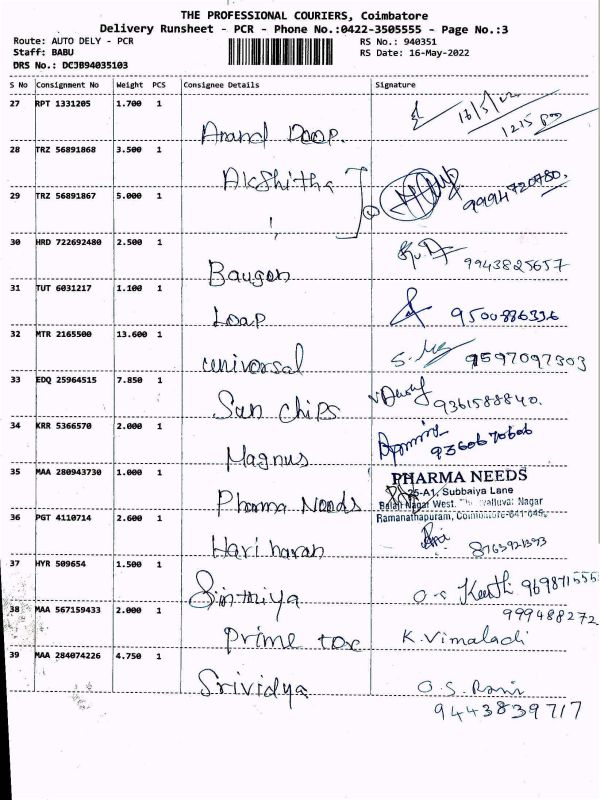 THE PROFESSIONAL COURIERS, Coimbatore
Delivery Runsheet - PCR - Phone No.:0422-3505555 - Page No.:3
Route: AUTO DELY - PCR RS No.: 940351
Staff: BABU RS Date: 16-May-2022
DRS No.: DCJB94035103
S No Consignment No Weight PCS Consignee Details Signature
27 RPT 1331205 1.700 1
Anand Doop. 16/5/22
1215
28 TRZ 56891868 3.500 1
Akshitha
29 TRZ 56891867 5.000 1 9994720780.
30 HRD 722692480 2.500 1
Baugon 9943825657
31 TUT 6031217 1.100 1
Loap 9500886336
32 MTR 2165500 13.600 1
universal 9597097303
33 EDQ 25964515 7.850 1
Sun chips 9361588840.
34 KRR 5366570 2.000 1
Magnus 9360670606
35 MAA 280943730 1.000 1 PHARMA NEEDS
Pharma Needs 25-A1, Subbaiya Lane
Balaji Nagar West, Nagar
36 PGT 4110714 2.600 1 Ramanathapuram,
Hari haran
37 HYR 509654 1.500 1
Sinthiya
38 MAA 567159433 2.000 1 999488272
Prime tox K.Vimaladi
39 MAA 284074226 4.750 1
Srividya O.S. Rani
9443839717